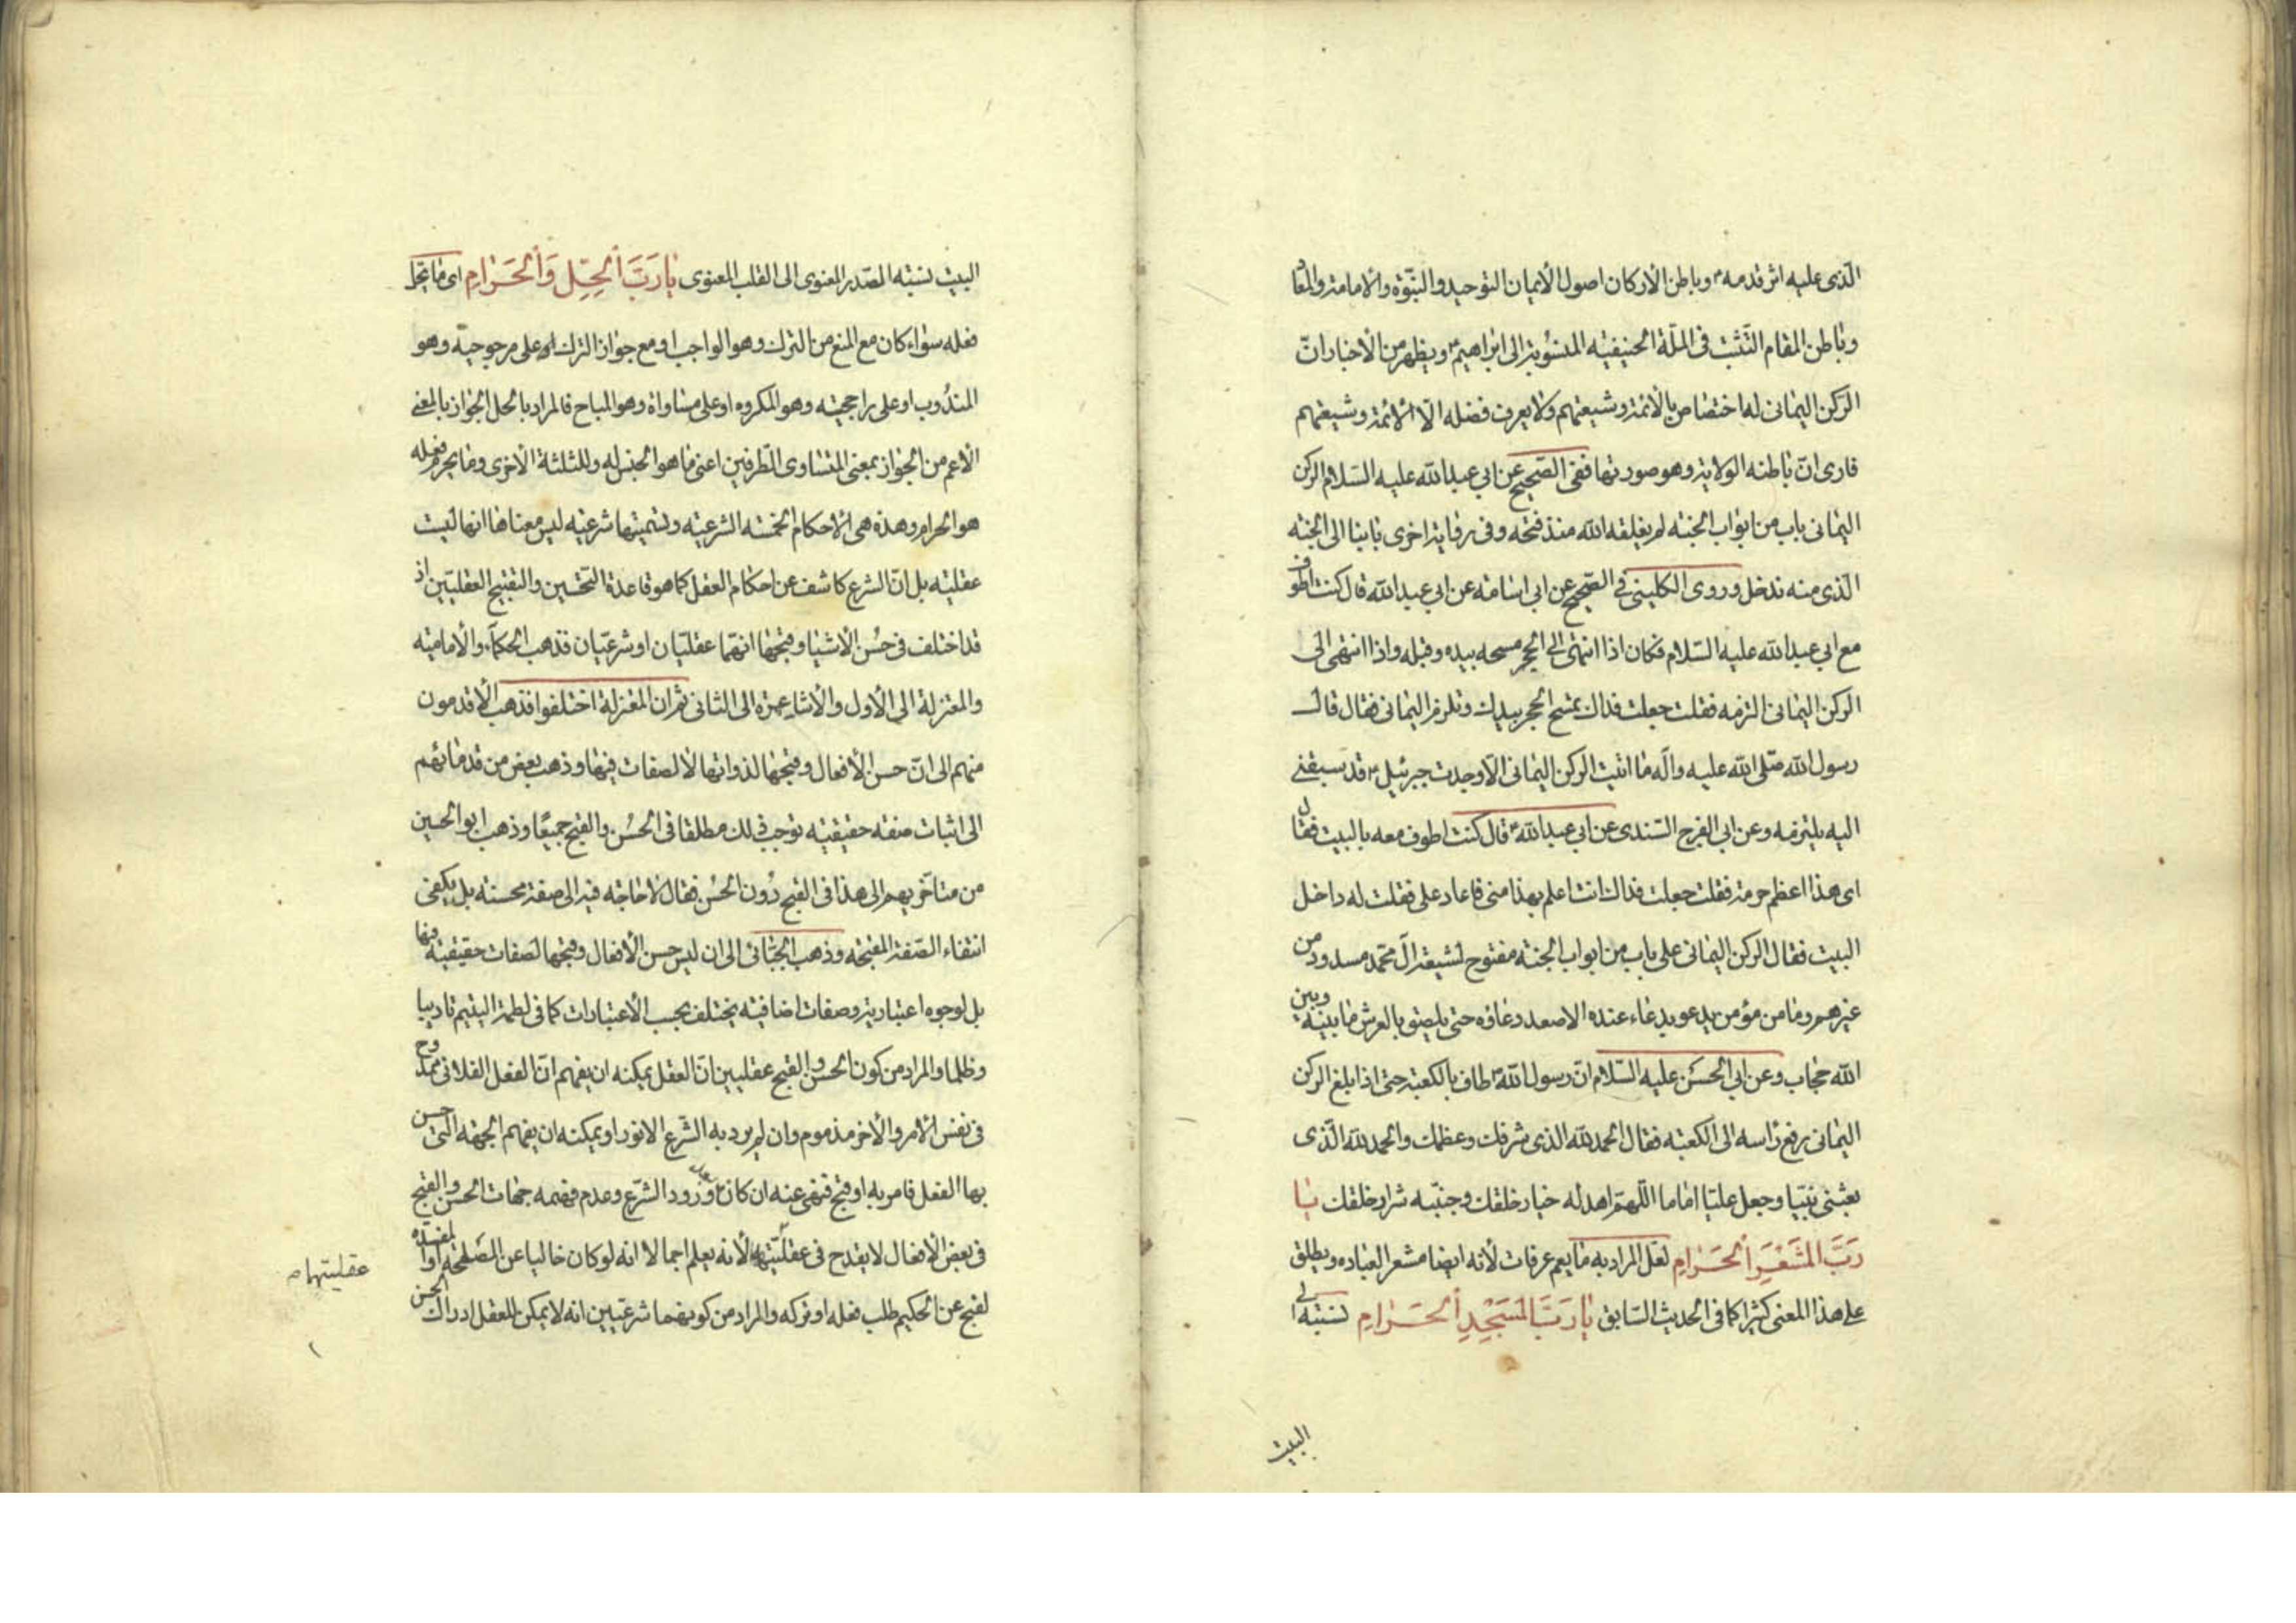 الّذى عليه اثر قدمه ع وباطن الاركان اصول الأيمان التوحيد والنبّوة والامامة والمعاد
وباطن المقام التثبت فى الملّة الحنيفيّه المنسوبة الى ابراهيم ع ويظهر من الأخبار انّ
الركن اليمانى له اختصاص بالأئمة وشيعتهم ولا يعرف فضله الّا الأئمة وشيعتهم
فارى انّ باطنه الولاية وهو صورتها ففى الصّحيح عن ابي عبد الله عليه السّلام الركن
اليمانى باب من ابواب الجنّه لم يغلقه الله منذ فتحه وفى رواية اخرى بابنا الى الجنّه
الّذى منه ندخل وروى الكلينى فى الصّحيح عن ابى اسامة عن ابي عبد الله قال كنت اطوف
مع ابي عبد الله عليه السّلام فكان اذا انتهى الى الحجر مسحه بيده وقبله واذا انتهى الى
الركن اليمانى التزمه فقلت جعلت فداك تمسح الحجر بيدك وتلزم اليمانى فقال قال
رسول الله صلّى الله عليه وآله ما اتيت الركن اليمانى الّا وجدت جبرئيل ع قد سبقنى
اليه يلتزمه وعن ابي الفرج السّندى عن ابي عبد الله ع قال كنت اطوف معه بالبيت فقال
اى هذا اعظم حرمة فقلت جعلت فداك انت اعلم بهذا منى فاعاد على فقلت له داخل
البيت فقال الركن اليمانى على باب من ابواب الجنّه مفتوح لشيعة آل محمّد مسدود من
غيرهم وما من مؤمن يدعو بدعاء عنده الا صعد دعاؤه حتى يلصق بالعرش ما بينه وبين
الله حجاب وعن ابي الحسن عليه السّلام انّ رسول الله ص طاف بالكعبة حتى اذا بلغ الركن
اليمانى رفع رأسه الى الكعبة فقال الحمد لله الذى شرفك وعظمك والحمد لله الّذى
بعثنى نبيّا وجعل عليّا اماما اللّهم اهد له خيار خلقك وجنّبه شرار خلقك يا
رَبَّ المَشْعَرِ الْحَرامِ لعل المراد به ما يعم عرفات لأنه ايضا مشعر العباده ويطلق
على هذا المعنى كثيرا كما فى الحديث السّابق يا رَبَّ المَسْجِدِ الْحَرامِ نسبته الى
البيت
البيت نسبة الصّدر المعنوى الى القلب المعنوى يا رَبَّ الْحِلِّ وَالْحَرامِ اى ما يحل
فعله سواء كان مع المنع من الترك وهو الواجب او مع جواز الترك او على مرجوحية وهو
المندوب او على راجحيته وهو المكروه او على مساواة وهو المباح فالمراد بالحل الجواز بالمعنى
الأعم من الجواز بمعنى المتساوى الطّرفين اعنى ما هو الجنس له وللثلثة الأخرى وما يحرم فعله
هو الحرام وهذه هى الأحكام الخمسة الشرعيّه وتسميتها شرعيّه ليس معناها انها ليست
عقليّه بل انّ الشرع كاشف عن احكام العقل كما هو قاعدة التّحسين والتقبيح العقليّين اذ
قد اختلف فى حُسن الأشياء وقبحها انهما عقليّان او شرعيّان فذهب الحكمآء والأماميّه
والمعتزلة الى الأول والأشاعرة الى الثانى ثم ان المعتزلة اختلفوا فذهب الأقدمون
منهم الى انّ حسن الأفعال وقبحها لذواتها لا لصفات فيها وذهب بعض من قدمائهم
الى اثبات صفة حقيقيّه توجب ذلك مطلقا فى الحسُن والقبح جميعًا وذهب ابو الحسين
من متأخريهم الى هذا فى القبح دُون الحُسن فقال لا حاجة فيه الى صفة محسنة بل يكفى
انتفاء الصّفة المقبحه وذهب الجبّائى الى ان ليس حسن الأفعال وقبحها لصفات حقيقيّة فيها
بل لوجوه اعتبارية وصفات اضافيّه يختلف بحسب الأعتبارات كما فى لطمة اليتيم تاديبا
وظلما والمراد من كون الحسن والقبح عقليين انّ العقل يمكنه ان يفهم انّ الفعل الفلانى ممدوح
فى نفس الأمر والأخر مذموم وان لم يرد به الشرع الانور او يمكنه ان يفهم الجهة التى حسن
بها الفعل فامر به او قبح فنهى عنه ان كان بعد ورود الشرع وعدم فهمه جهات الحسن والقبح
فى بعض الأفعال لا يقدح فى عقليّتها لأنه يعلم اجمالا انه لو كان خاليا عن المصلحة او المفسدة
لقبح عن الحكيم طلب فعله او تركه والمراد من كونهما شرعيّين انه لا يمكن للعقل ادراك الحسن
عقليتهما